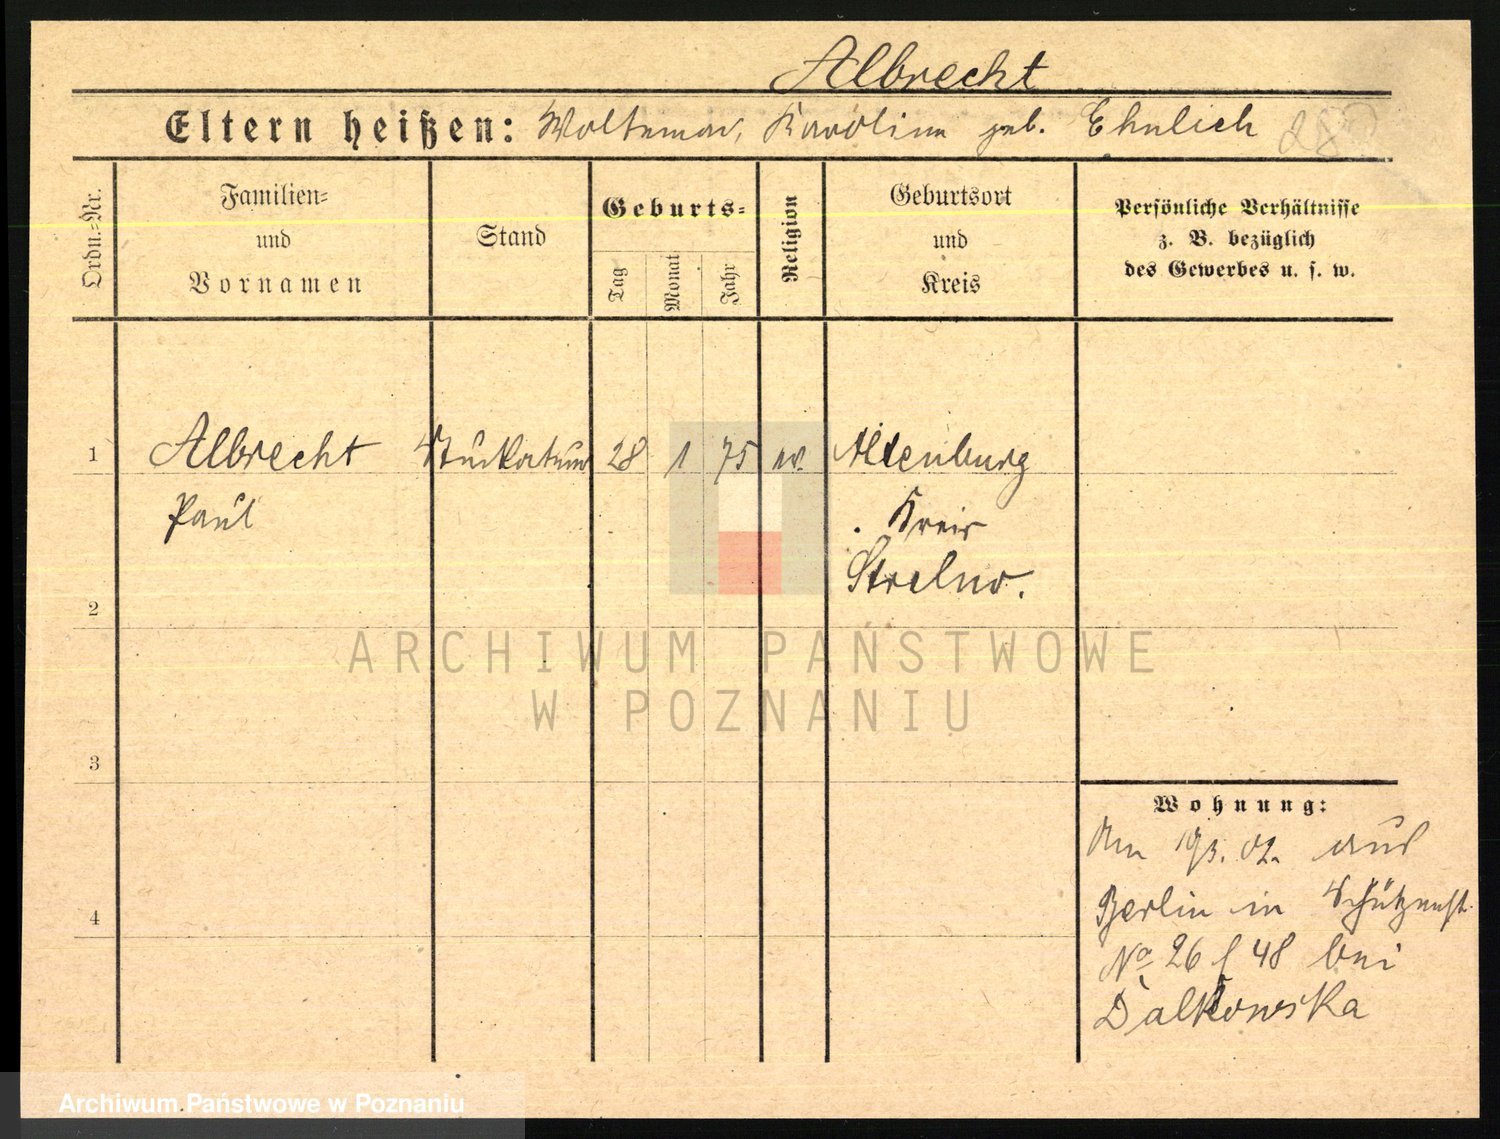 Albrecht
Eltern heißen: Woltemar, Karoline geb. Ehrlich
Ordn.-Nr.
Familien-
und
Vornamen
Stand
Geburts-
Tag
Monat
Jahr
Religion
Geburtsort
und
Kreis
Persönliche Verhältnisse
z. B. bezüglich
des Gewerbes u. s. w.
1
Albrecht Stuckateur 28 1 75 ev. Altenburg
Paul Kreis
Strelno.
2
3
4
Wohnung:
Am 19/3. 02. aus
Berlin in Schützenst.
No 26 / 48 bei
Dalkowska
ARCHIWUM PAŃSTWOWE
W POZNANIU
Archiwum Państwowe w Poznaniu